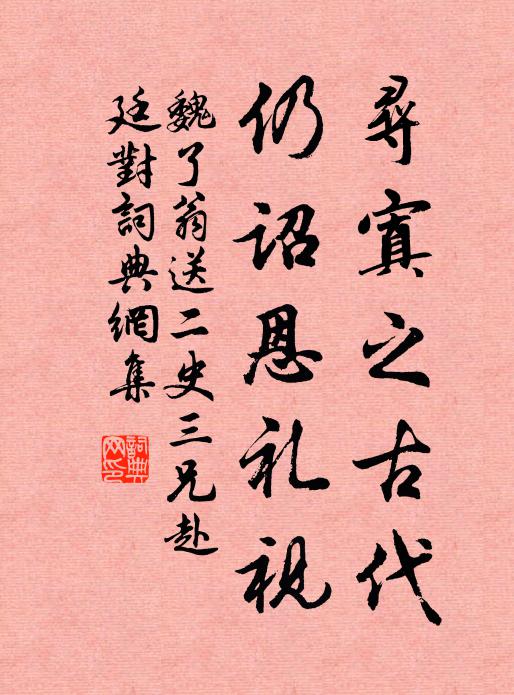 尋寘之古代
仍詔恩礼視
魏了翁送二史三兄赴
廷對詞典網集
詞典網印